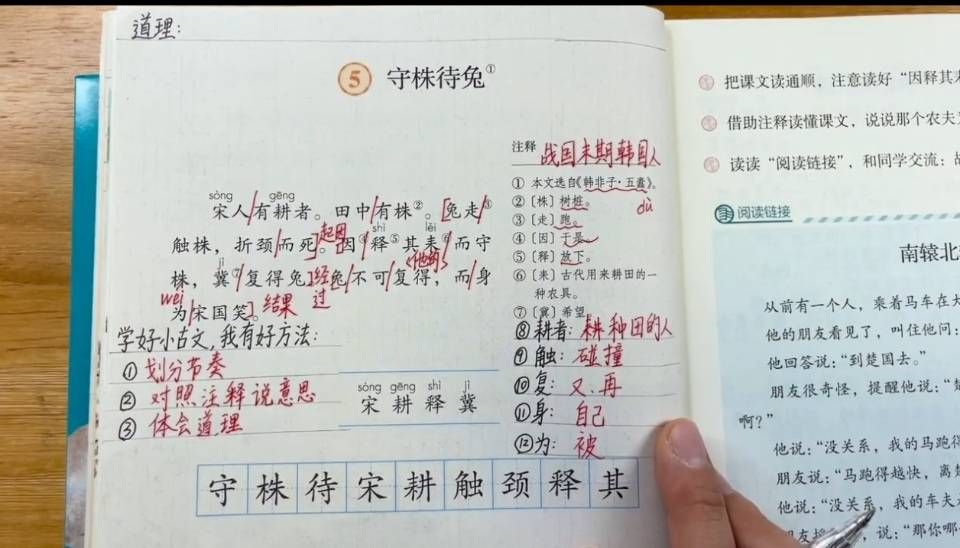 道理：
⑤ 守株待兔①
sòng gēng
宋人/有耕者。田中/有株②。[兔走/③
shì lěi
触株，折颈/而死]起因。因/④释⑤其耒⑥/而守
(他的)
jì
株，冀⑦/复得兔]经过兔/不可/复得，而/身
wéi
为/宋国笑]。结果
学好小古文，我有好方法：
① 划分节奏
② 对照注释说意思
③ 体会道理
sòng gēng shì jì
宋 耕 释 冀
注释 战国末期韩国人
① 本文选自《韩非子·五蠹》。
dù
②〔株〕树桩。
③〔走〕跑。
④〔因〕于是。
⑤〔释〕放下。
⑥〔耒〕古代用来耕田的一
种农具。
⑦〔冀〕希望。
⑧耕者：种田的人
⑨触：碰撞
⑩复：又、再
⑪身：自己
⑫为：被
守 株 待 宋 耕 触 颈 释 其
把课文读通顺，注意读好“因释其
借助注释读懂课文，说说那个农夫
读读“阅读链接”，和同学交流：
阅读链接
南辕北
从前有一个人，乘着马车在
他的朋友看见了，叫住他问：
他回答说：“到楚国去。”
朋友很奇怪，提醒他说：“
啊？”
他说：“没关系，我的马跑得
朋友说：“马跑得越快，离
他说：“没关系，我的车夫
朋友 说：“那你哪